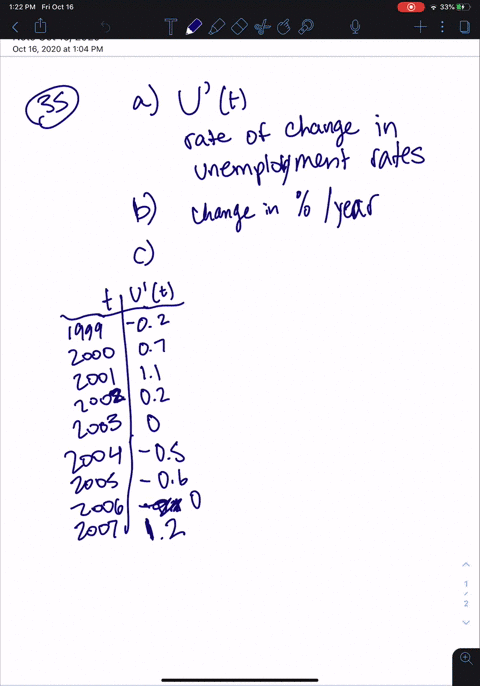 1:22 PM Fri Oct 16
33%
Oct 16, 2020 at 1:04 PM
35
a) U'(t)
rate of change in
unemployment rates
b) change in % /year
c)
t U'(t)
1999 -0.2
2000 0.7
2001 1.1
2002 0.2
2003 0
2004 -0.5
2005 -0.6
2006 0
2007 1.2
1
/
2